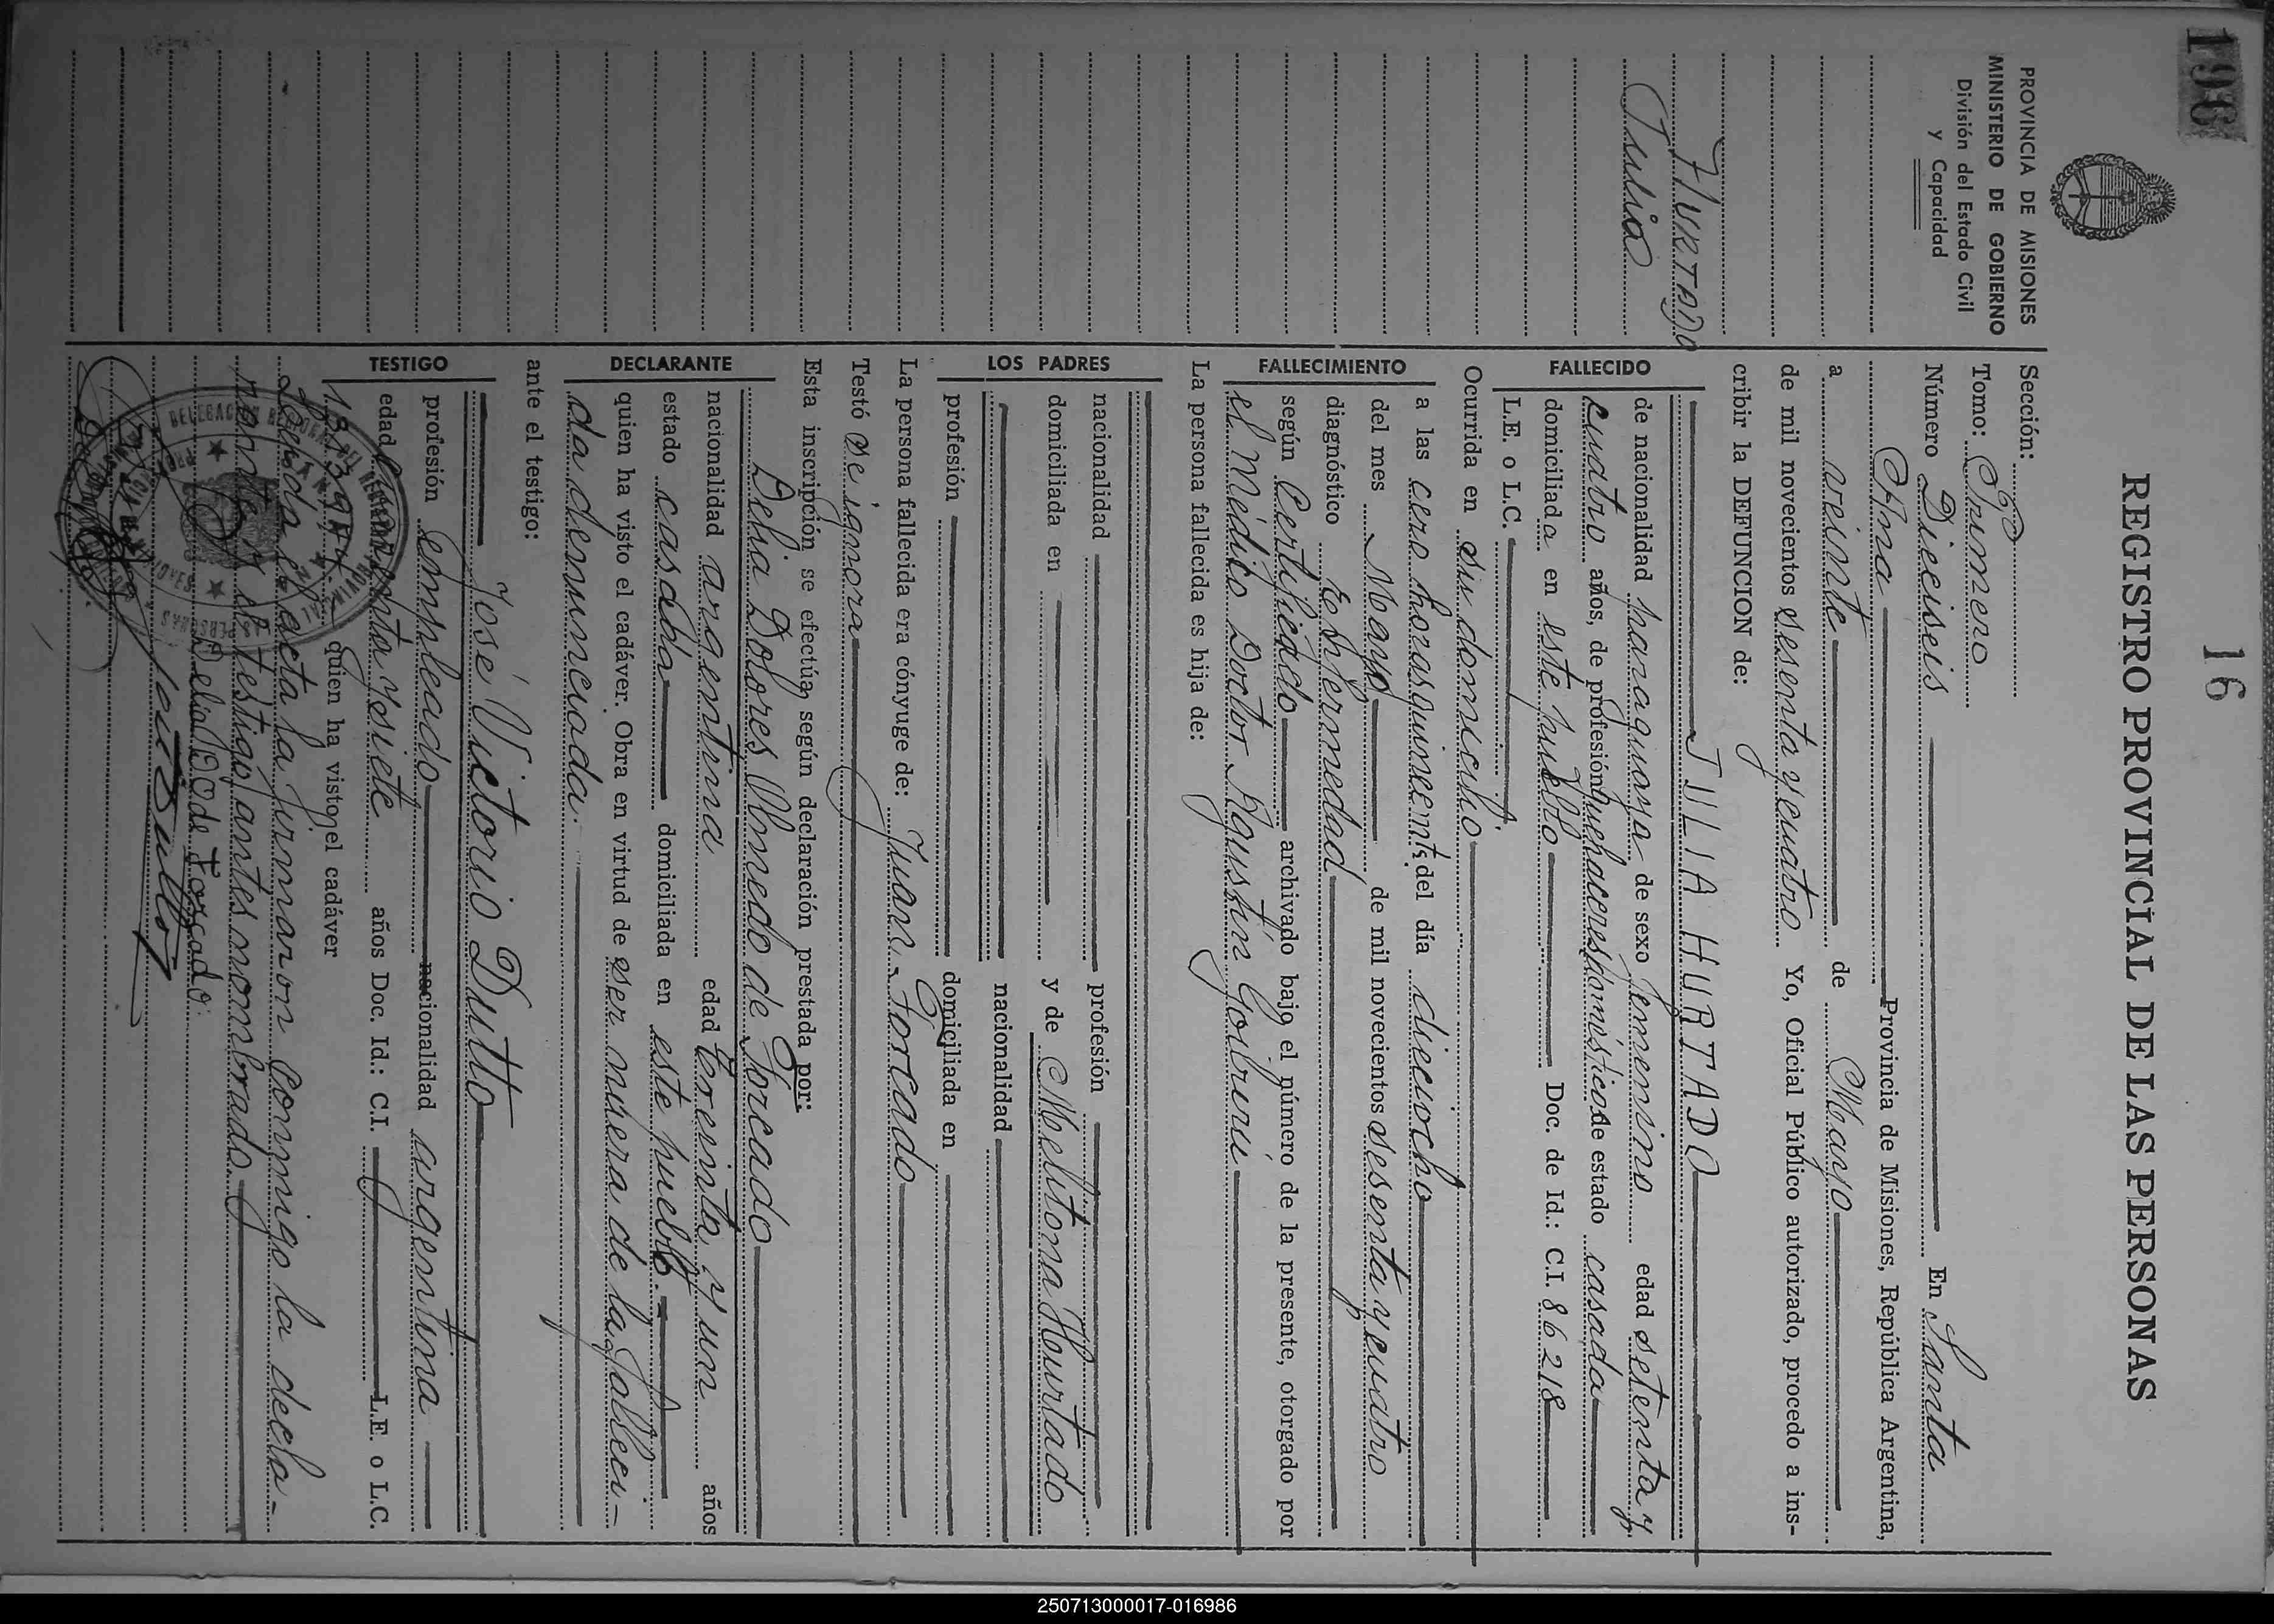 196
16
REGISTRO PROVINCIAL DE LAS PERSONAS
PROVINCIA DE MISIONES
MINISTERIO DE GOBIERNO
División del Estado Civil
y Capacidad
HURTADO
Julia
Sección:
Tomo: Primero
Número Dieciseis En Santa
Ana Provincia de Misiones, República Argentina,
a veinte de Mayo
de mil novecientos sesenta y cuatro Yo, Oficial Público autorizado, procedo a ins-
cribir la DEFUNCION de:
FALLECIDO
JULIA HURTADO
de nacionalidad paraguaya de sexo femenino edad setenta y
cuatro años, de profesión quehaceres domésticos de estado casada
domiciliada en este pueblo Doc. de Id.: C.I. 86218
L.E. o L.C.
Ocurrida en su domicilio
FALLECIMIENTO
a las cero horas quince mnts. del día dieciocho
del mes Mayo de mil novecientos sesenta y cuatro
diagnóstico enfermedad
según Certificado archivado bajo el número de la presente, otorgado por
el Médico Doctor Agustín Goibriú
La persona fallecida es hija de:
LOS PADRES
nacionalidad profesión
domiciliada en y de Melitona Hourtado
nacionalidad
profesión domiciliada en
La persona fallecida era cónyuge de: Juan Forcado
Testó se ignora
Esta inscripción se efectúa según declaración prestada por:
DECLARANTE
Delia Dolores Olmedo de Forcado
nacionalidad argentina edad treinta y un años
estado casada domiciliada en este pueblo.
quien ha visto el cadáver. Obra en virtud de ser núera de la falleci-
da denunciada.
ante el testigo:
TESTIGO
José Victorio Dutto
profesión empleado nacionalidad argentina
edad y siete años Doc. Id.: C.I. L.E. o L.C.
quien ha visto el cadáver
Leída el acta la firmaron conmigo la decla-
rante y el testigo antes nombrado.
Delia O de Forcado
250713000017-016986